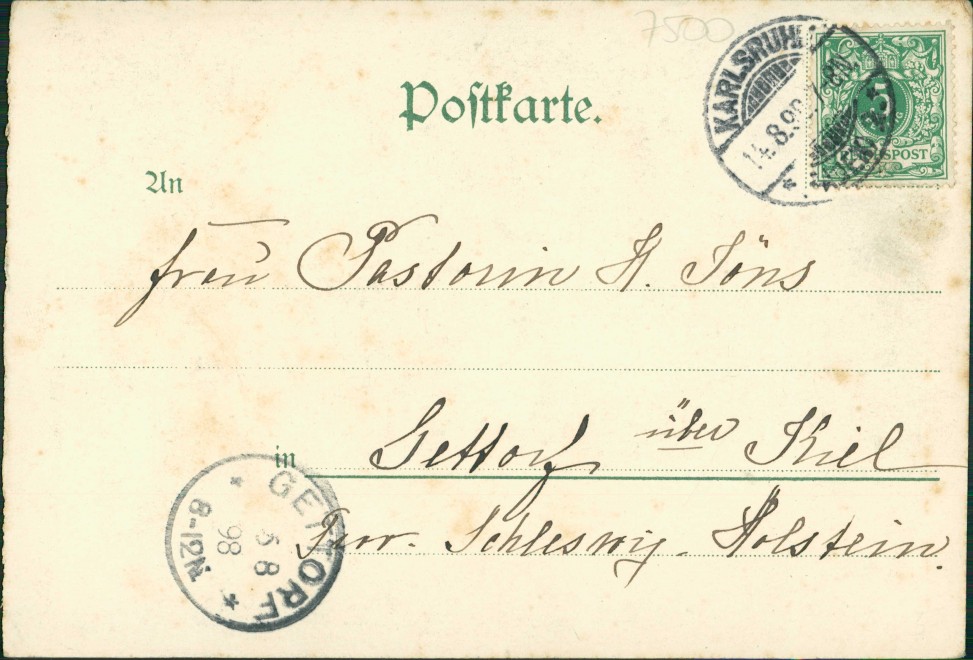 7500
Postkarte.
KARLSRUHE
14.8.98.
5
REICHSPOST
An
Frau Pastorin H. Jöns
in Gettorf über Kiel
Prov. Schleswig-Holstein.
GETTORF
8-12N
98